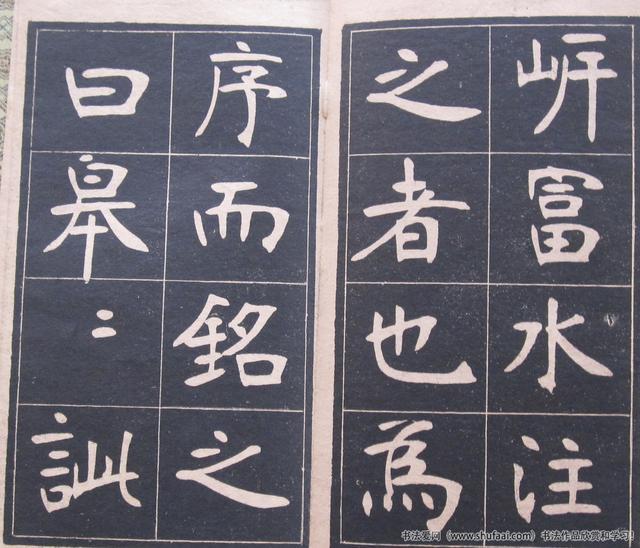 岍富水注
之者也為
序而銘之
曰皋〻訿
书法爱网（www.shufaai.com）书法作品欣赏和学习！